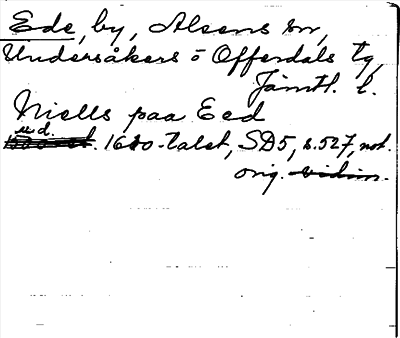 Ede, by, Alsens sn,
Undersåkers o Offerdals tg,
Jämtl. l.
Niells paa Eed
u.d.
1600-talet, SD5, s.527, not.
orig. vidim.